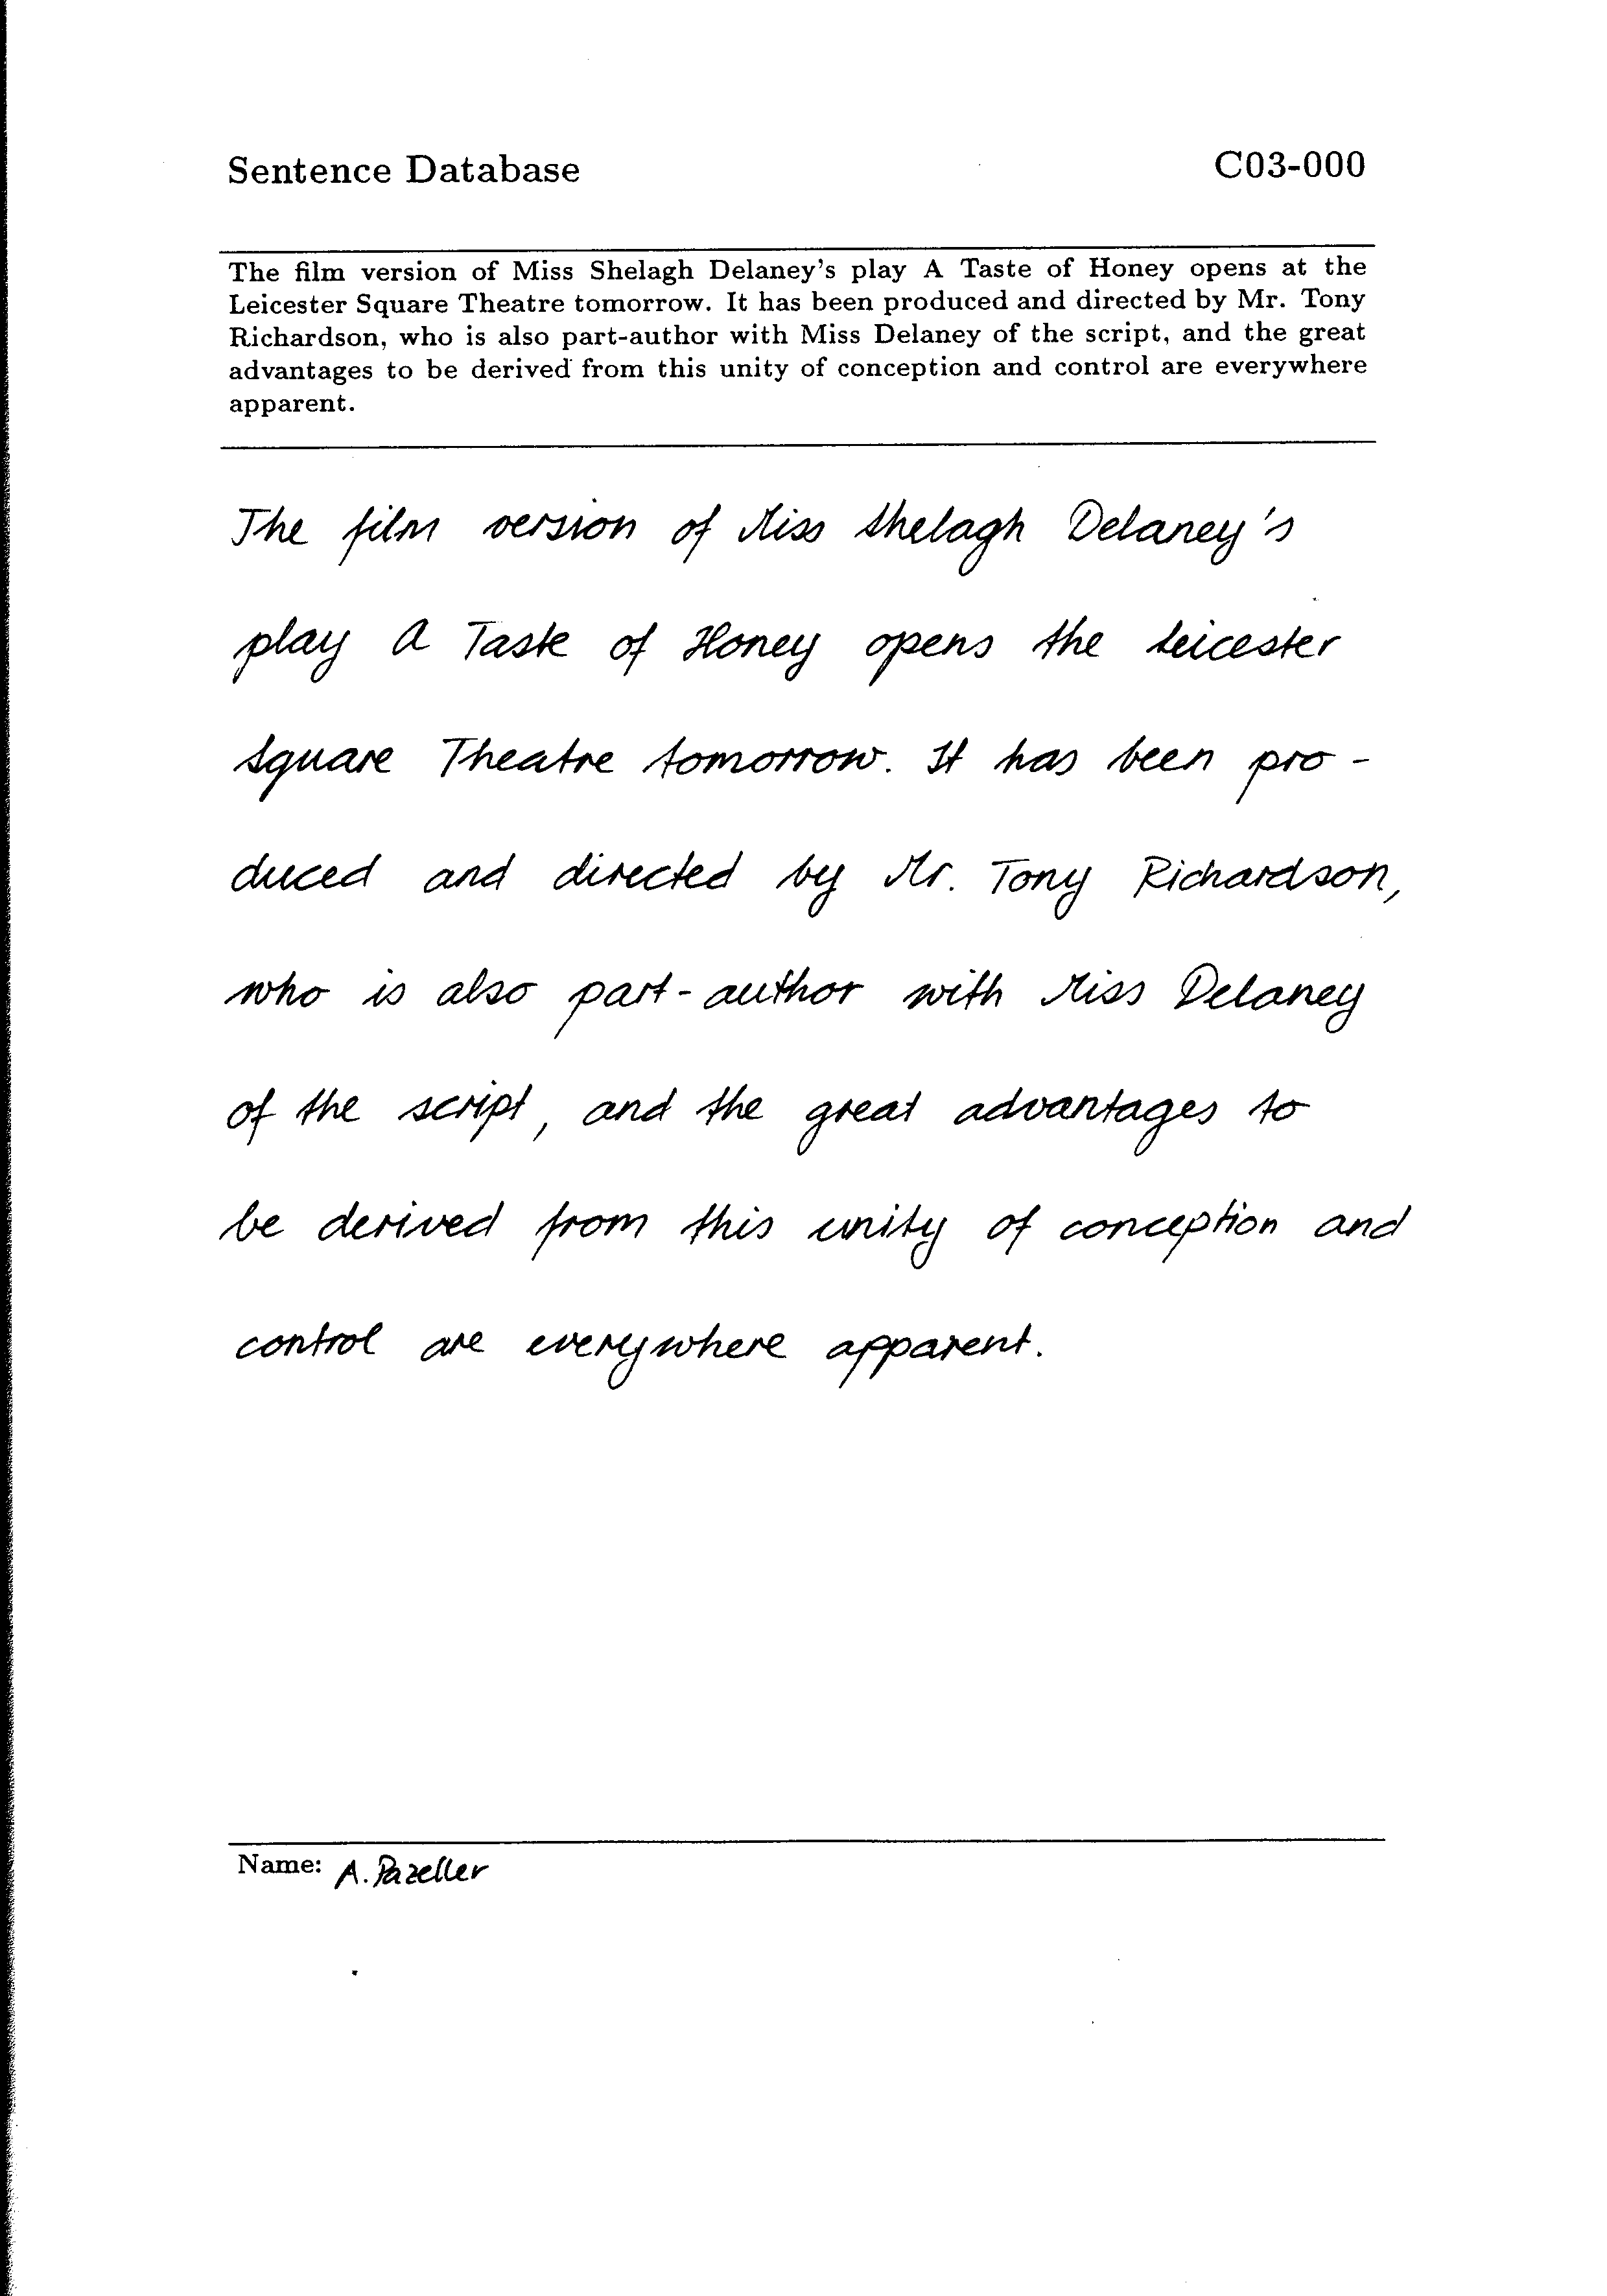 Sentence Database C03-000
The film version of Miss Shelagh Delaney's play A Taste of Honey opens at the
Leicester Square Theatre tomorrow. It has been produced and directed by Mr. Tony
Richardson, who is also part-author with Miss Delaney of the script, and the great
advantages to be derived from this unity of conception and control are everywhere
apparent.
The film version of Miss Shelagh Delaney's
play A Taste of Honey opens the Leicester
Square Theatre tomorrow. It has been pro-
duced and directed by Mr. Tony Richardson,
who is also part-author with Miss Delaney
of the script, and the great advantages to
be derived from this unity of conception and
control are everywhere apparent.
Name: A. Pazeller